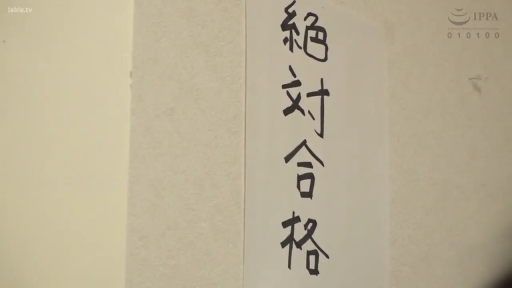 絶対合格
IPPA
010100